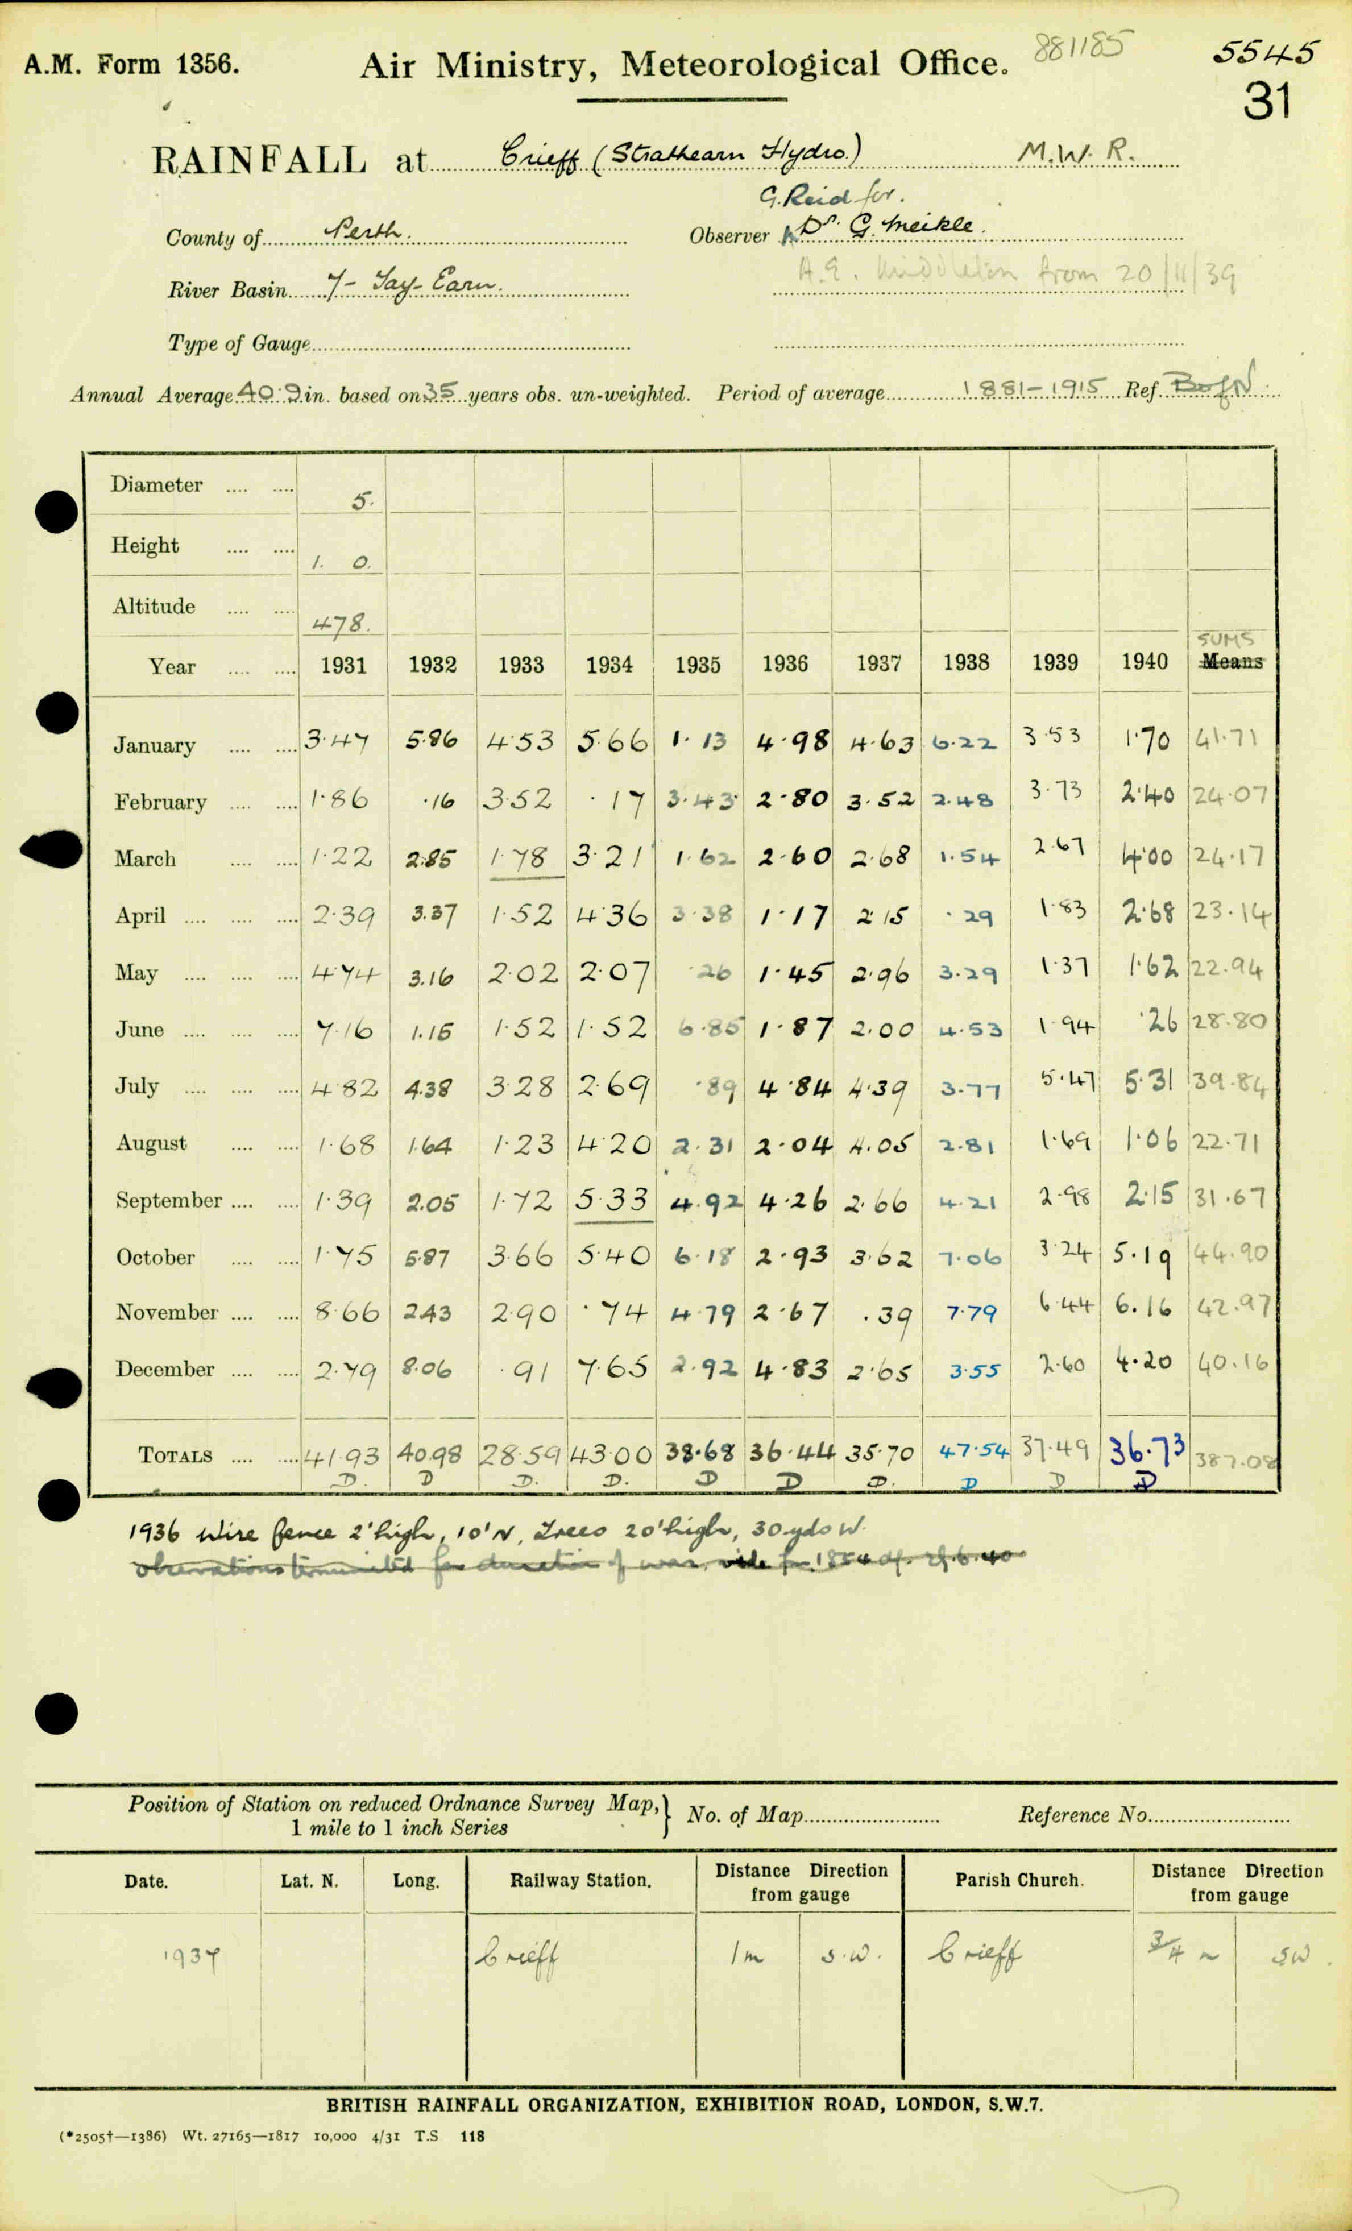 881185
5545
A.M. Form 1356. Air Ministry, Meteorological Office.
31
RAINFALL at Crieff (Strathearn Hydro.) M.W.R.
G. Reid for.
County of Perth. Observer Dr. G. Meikle.
A.E. Middleton from 20/11/39
River Basin 7- Tay- Earn.
Type of Gauge
Annual Average 40.9 in. based on 35 years obs. un-weighted. Period of average 1881-1915 Ref.
Diameter .... .... 5.
Height .... .... 1. 0.
Altitude .... .... 478.
SUMS
Year .... .... 1931 1932 1933 1934 1935 1936 1937 1938 1939 1940 Means
January .... .... 3.47 5.86 4.53 5.66 1.13 4.98 4.63 6.22 3.53 1.70 41.71
February .... .... 1.86 .16 3.52 .17 3.43 2.80 3.52 2.48 3.73 2.40 24.07
March .... .... 1.22 2.85 1.78 3.21 1.62 2.60 2.68 1.54 2.67 4.00 24.17
April .... .... .... 2.39 3.37 1.52 4.36 3.38 1.17 2.15 .29 1.83 2.68 23.14
May .... .... .... 4.74 3.16 2.02 2.07 .26 1.45 2.96 3.29 1.37 1.62 22.94
June .... .... .... 7.16 1.15 1.52 1.52 6.85 1.87 2.00 4.53 1.94 .26 28.80
July .... .... .... 4.82 4.38 3.28 2.69 .89 4.84 4.39 3.77 5.47 5.31 39.84
August .... .... 1.68 1.64 1.23 4.20 2.31 2.04 4.05 2.81 1.69 1.06 22.71
September .... .... 1.39 2.05 1.72 5.33 4.92 4.26 2.66 4.21 2.98 2.15 31.67
October .... .... 1.75 5.87 3.66 5.40 6.18 2.93 3.62 7.06 3.24 5.19 44.90
November .... .... 8.66 2.43 2.90 .74 4.79 2.67 .39 7.79 6.44 6.16 42.97
December .... .... 2.79 8.06 .91 7.65 2.92 4.83 2.65 3.55 2.60 4.20 40.16
TOTALS .... .... 41.93 40.98 28.59 43.00 38.68 36.44 35.70 47.54 37.49 36.73 387.08
D. D D. D. D D D. D D D
1936 Wire fence 2' high, 10' N, Trees 20' high, 30 yds W.
observations terminated for duration of war, vide
Position of Station on reduced Ordnance Survey Map, } No. of Map Reference No.
1 mile to 1 inch Series
Date. Lat. N. Long. Railway Station. Distance Direction from gauge Parish Church. Distance Direction from gauge
1937 Crieff 1m S.W. Crieff 3/4 m SW.
BRITISH RAINFALL ORGANIZATION, EXHIBITION ROAD, LONDON, S.W.7.
(*2505†—1386) Wt. 27165—1817 10,000 4/31 T.S 118